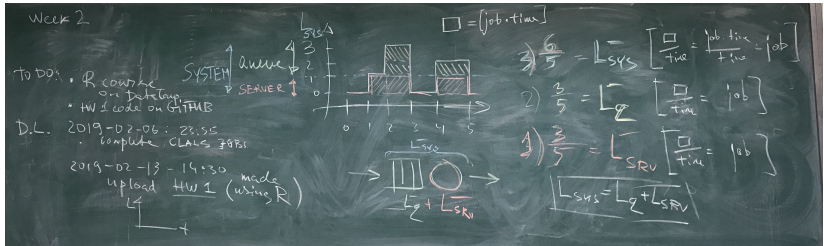 Week 2
TO DO: • R course
on Datacamp
• HW1 code on GITHUB
D.L. 2019-02-06: 23:55
• complete CLASS JOBS
2019-02-13 - 14:30
upload HW1 (made using R)
SYSTEM
QUEUE
SERVER
L sys
3
2
1
0
0 1 2 3 4 5
□ = [job·time]
L sys
Lq + L SRV
3) 6/5 = L sys [□/time = job·time/time = job]
2) 3/5 = Lq [□/time = job]
1) 3/5 = L SRV [□/time = job]
L sys = Lq + L SRV